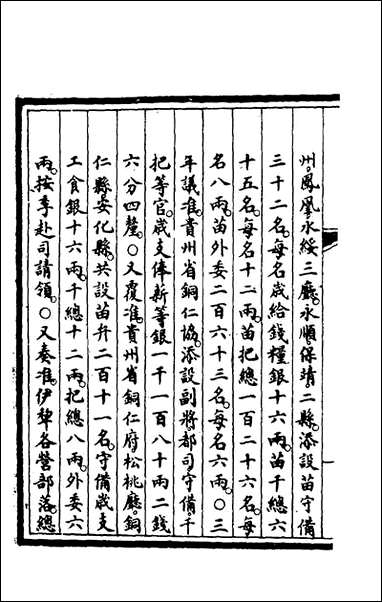 州鳳凰永綏三廳永順保靖二縣添設苗守備
三十二名每名歲給錢糧銀十六兩苗千總六
十五名每名十二兩苗把總一百二十六名每
名八兩苗外委二百六十三名每名六兩〇三
年議准貴州省銅仁協添設副將都司守備千
把等官歲支俸薪等銀一千一百八十兩二錢
六分四釐〇又覆准貴州省銅仁府松桃廳銅
仁縣安化縣共設苗弁二百十一名守備歲支
工食銀十六兩千總十二兩把總八兩外委六
兩按季赴司請領〇又奏准伊犂各營部落總